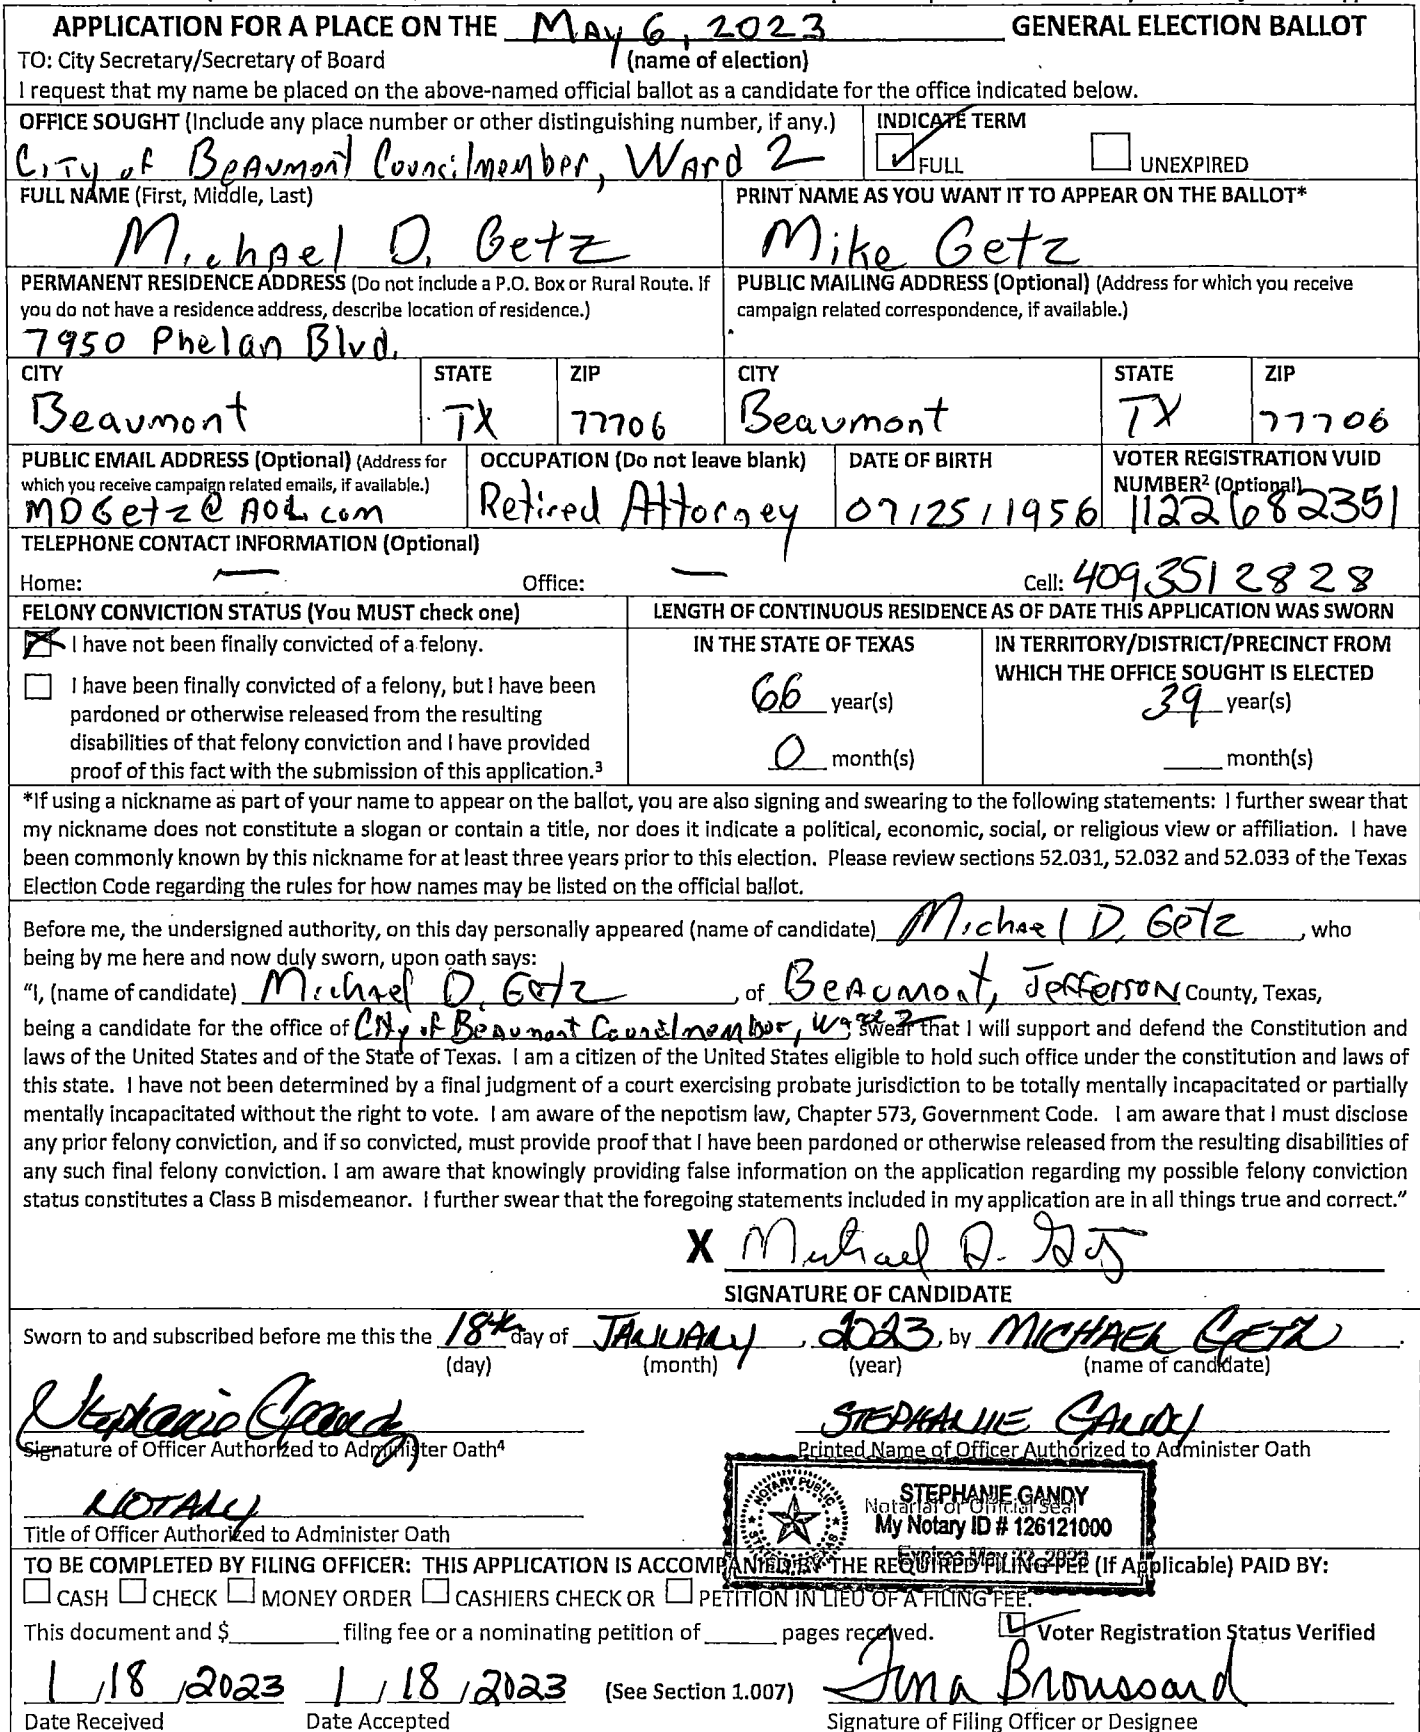 APPLICATION FOR A PLACE ON THE May 6, 2023 GENERAL ELECTION BALLOT
TO: City Secretary/Secretary of Board (name of election)
I request that my name be placed on the above-named official ballot as a candidate for the office indicated below.
OFFICE SOUGHT (Include any place number or other distinguishing number, if any.) INDICATE TERM
City of Beaumont Councilmember, Ward 2 FULL UNEXPIRED
FULL NAME (First, Middle, Last) PRINT NAME AS YOU WANT IT TO APPEAR ON THE BALLOT*
Michael D. Getz Mike Getz
PERMANENT RESIDENCE ADDRESS (Do not include a P.O. Box or Rural Route. If you do not have a residence address, describe location of residence.) PUBLIC MAILING ADDRESS (Optional) (Address for which you receive campaign related correspondence, if available.)
7950 Phelan Blvd.
CITY STATE ZIP CITY STATE ZIP
Beaumont TX 77706 Beaumont TX 77706
PUBLIC EMAIL ADDRESS (Optional) (Address for which you receive campaign related emails, if available.) OCCUPATION (Do not leave blank) DATE OF BIRTH VOTER REGISTRATION VUID NUMBER² (Optional)
MDGetz@AOL.com Retired Attorney 07/25/1956 1122682351
TELEPHONE CONTACT INFORMATION (Optional)
Home: — Office: — Cell: 4093512828
FELONY CONVICTION STATUS (You MUST check one) LENGTH OF CONTINUOUS RESIDENCE AS OF DATE THIS APPLICATION WAS SWORN
I have not been finally convicted of a felony. IN THE STATE OF TEXAS IN TERRITORY/DISTRICT/PRECINCT FROM WHICH THE OFFICE SOUGHT IS ELECTED
I have been finally convicted of a felony, but I have been
pardoned or otherwise released from the resulting 66 year(s) 39 year(s)
disabilities of that felony conviction and I have provided
proof of this fact with the submission of this application.³ 0 month(s) month(s)
*If using a nickname as part of your name to appear on the ballot, you are also signing and swearing to the following statements: I further swear that
my nickname does not constitute a slogan or contain a title, nor does it indicate a political, economic, social, or religious view or affiliation. I have
been commonly known by this nickname for at least three years prior to this election. Please review sections 52.031, 52.032 and 52.033 of the Texas
Election Code regarding the rules for how names may be listed on the official ballot.
Before me, the undersigned authority, on this day personally appeared (name of candidate) Michael D. Getz, who
being by me here and now duly sworn, upon oath says:
"I, (name of candidate) Michael D. Getz, of Beaumont, Jefferson County, Texas,
being a candidate for the office of City of Beaumont Councilmember, Ward 2 swear that I will support and defend the Constitution and
laws of the United States and of the State of Texas. I am a citizen of the United States eligible to hold such office under the constitution and laws of
this state. I have not been determined by a final judgment of a court exercising probate jurisdiction to be totally mentally incapacitated or partially
mentally incapacitated without the right to vote. I am aware of the nepotism law, Chapter 573, Government Code. I am aware that I must disclose
any prior felony conviction, and if so convicted, must provide proof that I have been pardoned or otherwise released from the resulting disabilities of
any such final felony conviction. I am aware that knowingly providing false information on the application regarding my possible felony conviction
status constitutes a Class B misdemeanor. I further swear that the foregoing statements included in my application are in all things true and correct."
X Michael D. Getz
SIGNATURE OF CANDIDATE
Sworn to and subscribed before me this the 18th day of JANUARY, 2023, by MICHAEL GETZ.
(day) (month) (year) (name of candidate)
Stephanie Gandy STEPHANIE GANDY
Signature of Officer Authorized to Administer Oath⁴ Printed Name of Officer Authorized to Administer Oath
NOTARY PUBLIC STEPHANIE GANDY
Notarial or Official Seal
NOTARY My Notary ID # 126121000
Title of Officer Authorized to Administer Oath Expires May 2023
TO BE COMPLETED BY FILING OFFICER: THIS APPLICATION IS ACCOMPANIED BY THE REQUIRED FILING FEE (If Applicable) PAID BY:
CASH CHECK MONEY ORDER CASHIERS CHECK OR PETITION IN LIEU OF A FILING FEE.
This document and $ filing fee or a nominating petition of pages received. Voter Registration Status Verified
1/18/2023 1/18/2023 (See Section 1.007) Tina Broussard
Date Received Date Accepted Signature of Filing Officer or Designee